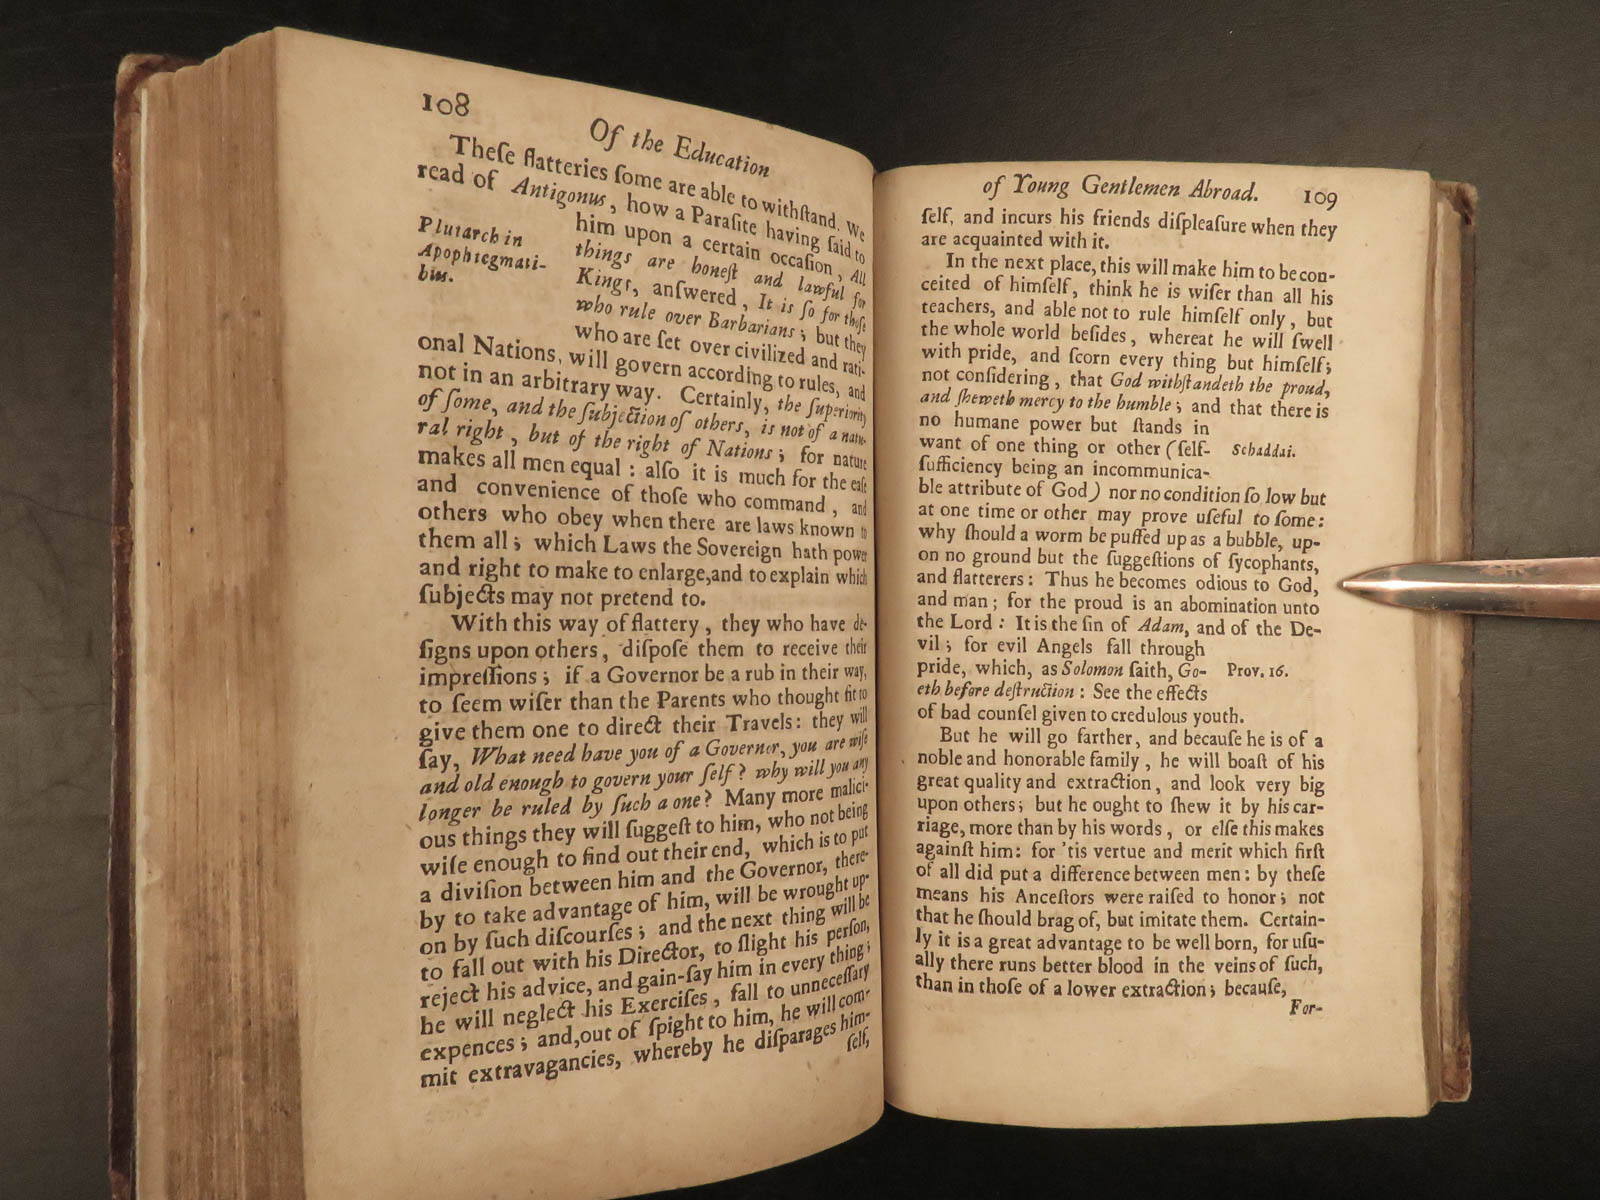 108
Of the Education
Theſe flatteries ſome are able to withſtand. We
read of Antigonus, how a Paraſite having ſaid to
him upon a certain occaſion, All
things are honeſt and lawful for
Kings, anſwered, It is ſo for thoſe
who rule over Barbarians; but they
who are ſet over civilized and rati-
Plutarch in
Apophtegmati-
bus.
onal Nations, will govern according to rules, and
not in an arbitrary way. Certainly, the ſuperiority
of ſome, and the ſubjection of others, is not of a natu-
ral right, but of the right of Nations; for nature
makes all men equal: alſo it is much for the eaſe
and convenience of thoſe who command, and
others who obey when there are laws known to
them all; which Laws the Sovereign hath power
and right to make to enlarge,and to explain which
ſubjects may not pretend to.
With this way of flattery, they who have de-
ſigns upon others, diſpoſe them to receive their
impreſſions; if a Governor be a rub in their way,
to ſeem wiſer than the Parents who thought fit to
give them one to direct their Travels: they will
ſay, What need have you of a Governor, you are wiſe
and old enough to govern your ſelf? why will you any
longer be ruled by ſuch a one? Many more malici-
ous things they will ſuggeſt to him, who not being
wiſe enough to find out their end, which is to put
a diviſion between him and the Governor, there-
by to take advantage of him, will be wrought up-
on by ſuch diſcourſes; and the next thing will be
to fall out with his Director, to ſlight his perſon,
reject his advice, and gain-ſay him in every thing;
he will neglect his Exerciſes, fall to unneceſſary
expences; and,out of ſpight to him, he will com-
mit extravagancies, whereby he diſparages him-
ſelf,
of Young Gentlemen Abroad.
109
ſelf, and incurs his friends diſpleaſure when they
are acquainted with it.
In the next place, this will make him to be con-
ceited of himſelf, think he is wiſer than all his
teachers, and able not to rule himſelf only, but
the whole world beſides, whereat he will ſwell
with pride, and ſcorn every thing but himſelf;
not conſidering, that God withſtandeth the proud,
and ſheweth mercy to the humble; and that there is
no humane power but ſtands in
want of one thing or other (ſelf-
Schaddai.
ſufficiency being an incommunica-
ble attribute of God) nor no condition ſo low but
at one time or other may prove uſeful to ſome:
why ſhould a worm be puffed up as a bubble, up-
on no ground but the ſuggeſtions of ſycophants,
and flatterers: Thus he becomes odious to God,
and man; for the proud is an abomination unto
the Lord: It is the ſin of Adam, and of the De-
vil; for evil Angels fall through
pride, which, as Solomon ſaith, Go-
Prov. 16.
eth before deſtruction: See the effects
of bad counſel given to credulous youth.
But he will go farther, and becauſe he is of a
noble and honorable family, he will boaſt of his
great quality and extraction, and look very big
upon others; but he ought to ſhew it by his car-
riage, more than by his words, or elſe this makes
againſt him: for 'tis vertue and merit which firſt
of all did put a difference between men: by theſe
means his Anceſtors were raiſed to honor; not
that he ſhould brag of, but imitate them. Certain-
ly it is a great advantage to be well born, for uſu-
ally there runs better blood in the veins of ſuch,
than in thoſe of a lower extraction; becauſe,
For-